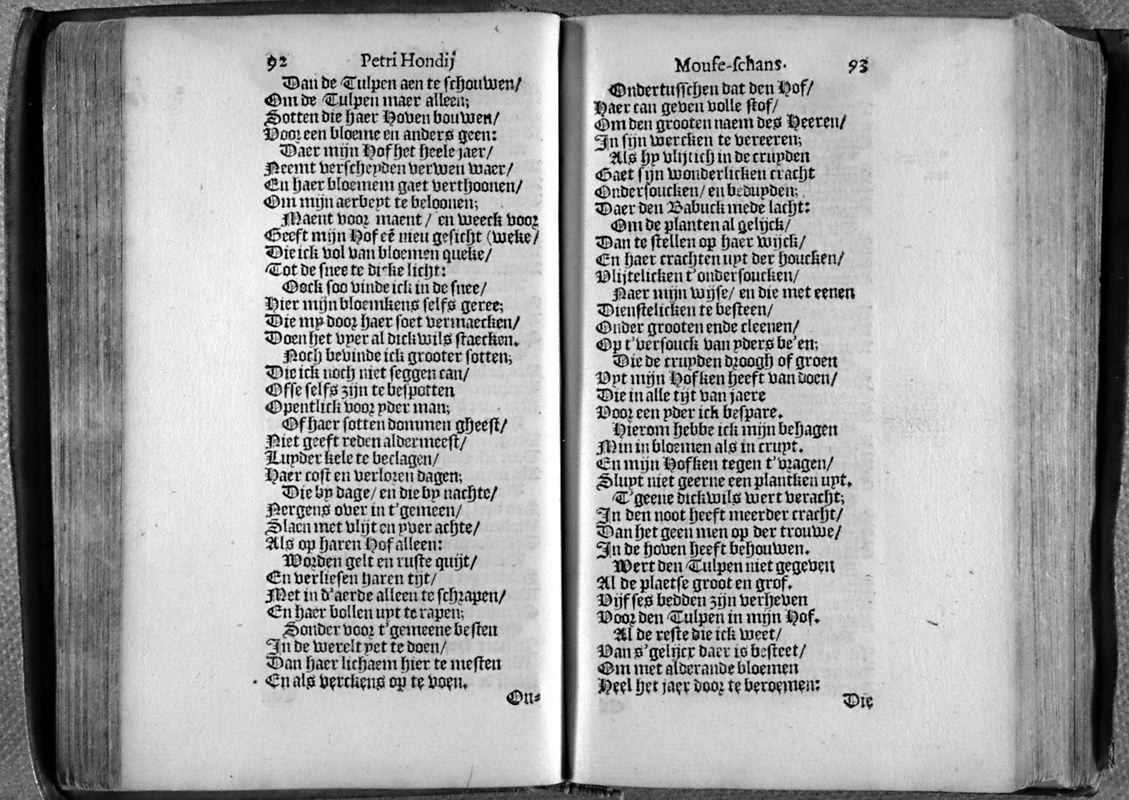 92 Petri Hondij
Dan de Tulpen aen te schouwen/
Om de Tulpen maer alleen;
Sotten die haer Hoven bouwen/
Voor een bloeme en anders geen:
Daer mijn Hof het heele jaer/
Neemt verscheyden verwen waer/
En haer bloemem gaet verthoonen/
Om mijn aerbeyt te beloonen;
Maent voor maent / en weeck voor
Geeft mijn Hof eẽ nieu gesicht (weke/
Die ick vol van bloemen queke/
Tot de snee te dicke licht:
Oock soo vinde ick in de snee/
Hier mijn bloemkens selfs geree;
Die my door haer soet vermaecken/
Doen het vyer al dickwils staecken.
Noch bevinde ick grooter sotten;
Die ick noch niet seggen can/
Ofse selfs zijn te bespotten
Opentlick voor yder man;
Of haer sotten dommen gheest/
Niet geeft reden aldermeest/
Luyder kele te beclagen/
Haer cost en verloren dagen;
Die by dage/ en die by nachte/
Nergens over in t'gemeen/
Slaen met vlijt en yver achte/
Als op haren Hof alleen:
Worden gelt en ruste quijt/
En verliesen haren tijt/
Met in d'aerde alleen te schrapen/
En haer bollen uyt te rapen;
Sonder voor t'gemeene besten
In de werelt yet te doen/
Dan haer lichaem hier te mesten
En als verckens op te voen.
On-
Mouse-schans. 93
Ondertusschen dat den Hof/
Haer can geven volle stof/
Om den grooten naem des Heeren/
In sijn wercken te vereeren;
Als hy vlijtich in de cruyden
Gaet sijn wonderlicken cracht
Ondersoucken/ en beduyden;
Daer den Babuck mede lacht:
Om de planten al gelijck/
Dan te stellen op haer wijck/
En haer crachten uyt der houcken/
Vlijtelicken t'ondersoucken/
Naer mijn wijse/ en die met eenen
Dienstelicken te besteen/
Onder grooten ende cleenen/
Op t'versouck van yders be'en;
Die de cruyden droogh of groen
Vyt mijn Hofken heeft van doen/
Die in alle tijt van jaere
Voor een yder ick bespare.
Hierom hebbe ick mijn behagen
Min in bloemen als in cruyt.
En mijn Hofken tegen t'vragen/
Sluyt niet geerne een plantken uyt.
T'geene dickwils wert veracht;
In den noot heeft meerder cracht/
Dan het geen men op der trouwe/
In de hoven heeft behouwen.
Wert den Tulpen niet gegeven
Al de plaetse groot en grof.
Vijf ses bedden zijn verheven
Voor den Tulpen in mijn Hof.
Al de reste die ick weet/
Van s'gelijcx daer is besteet/
Om met alderande bloemen
Heel het jaer door te beroemen:
Die